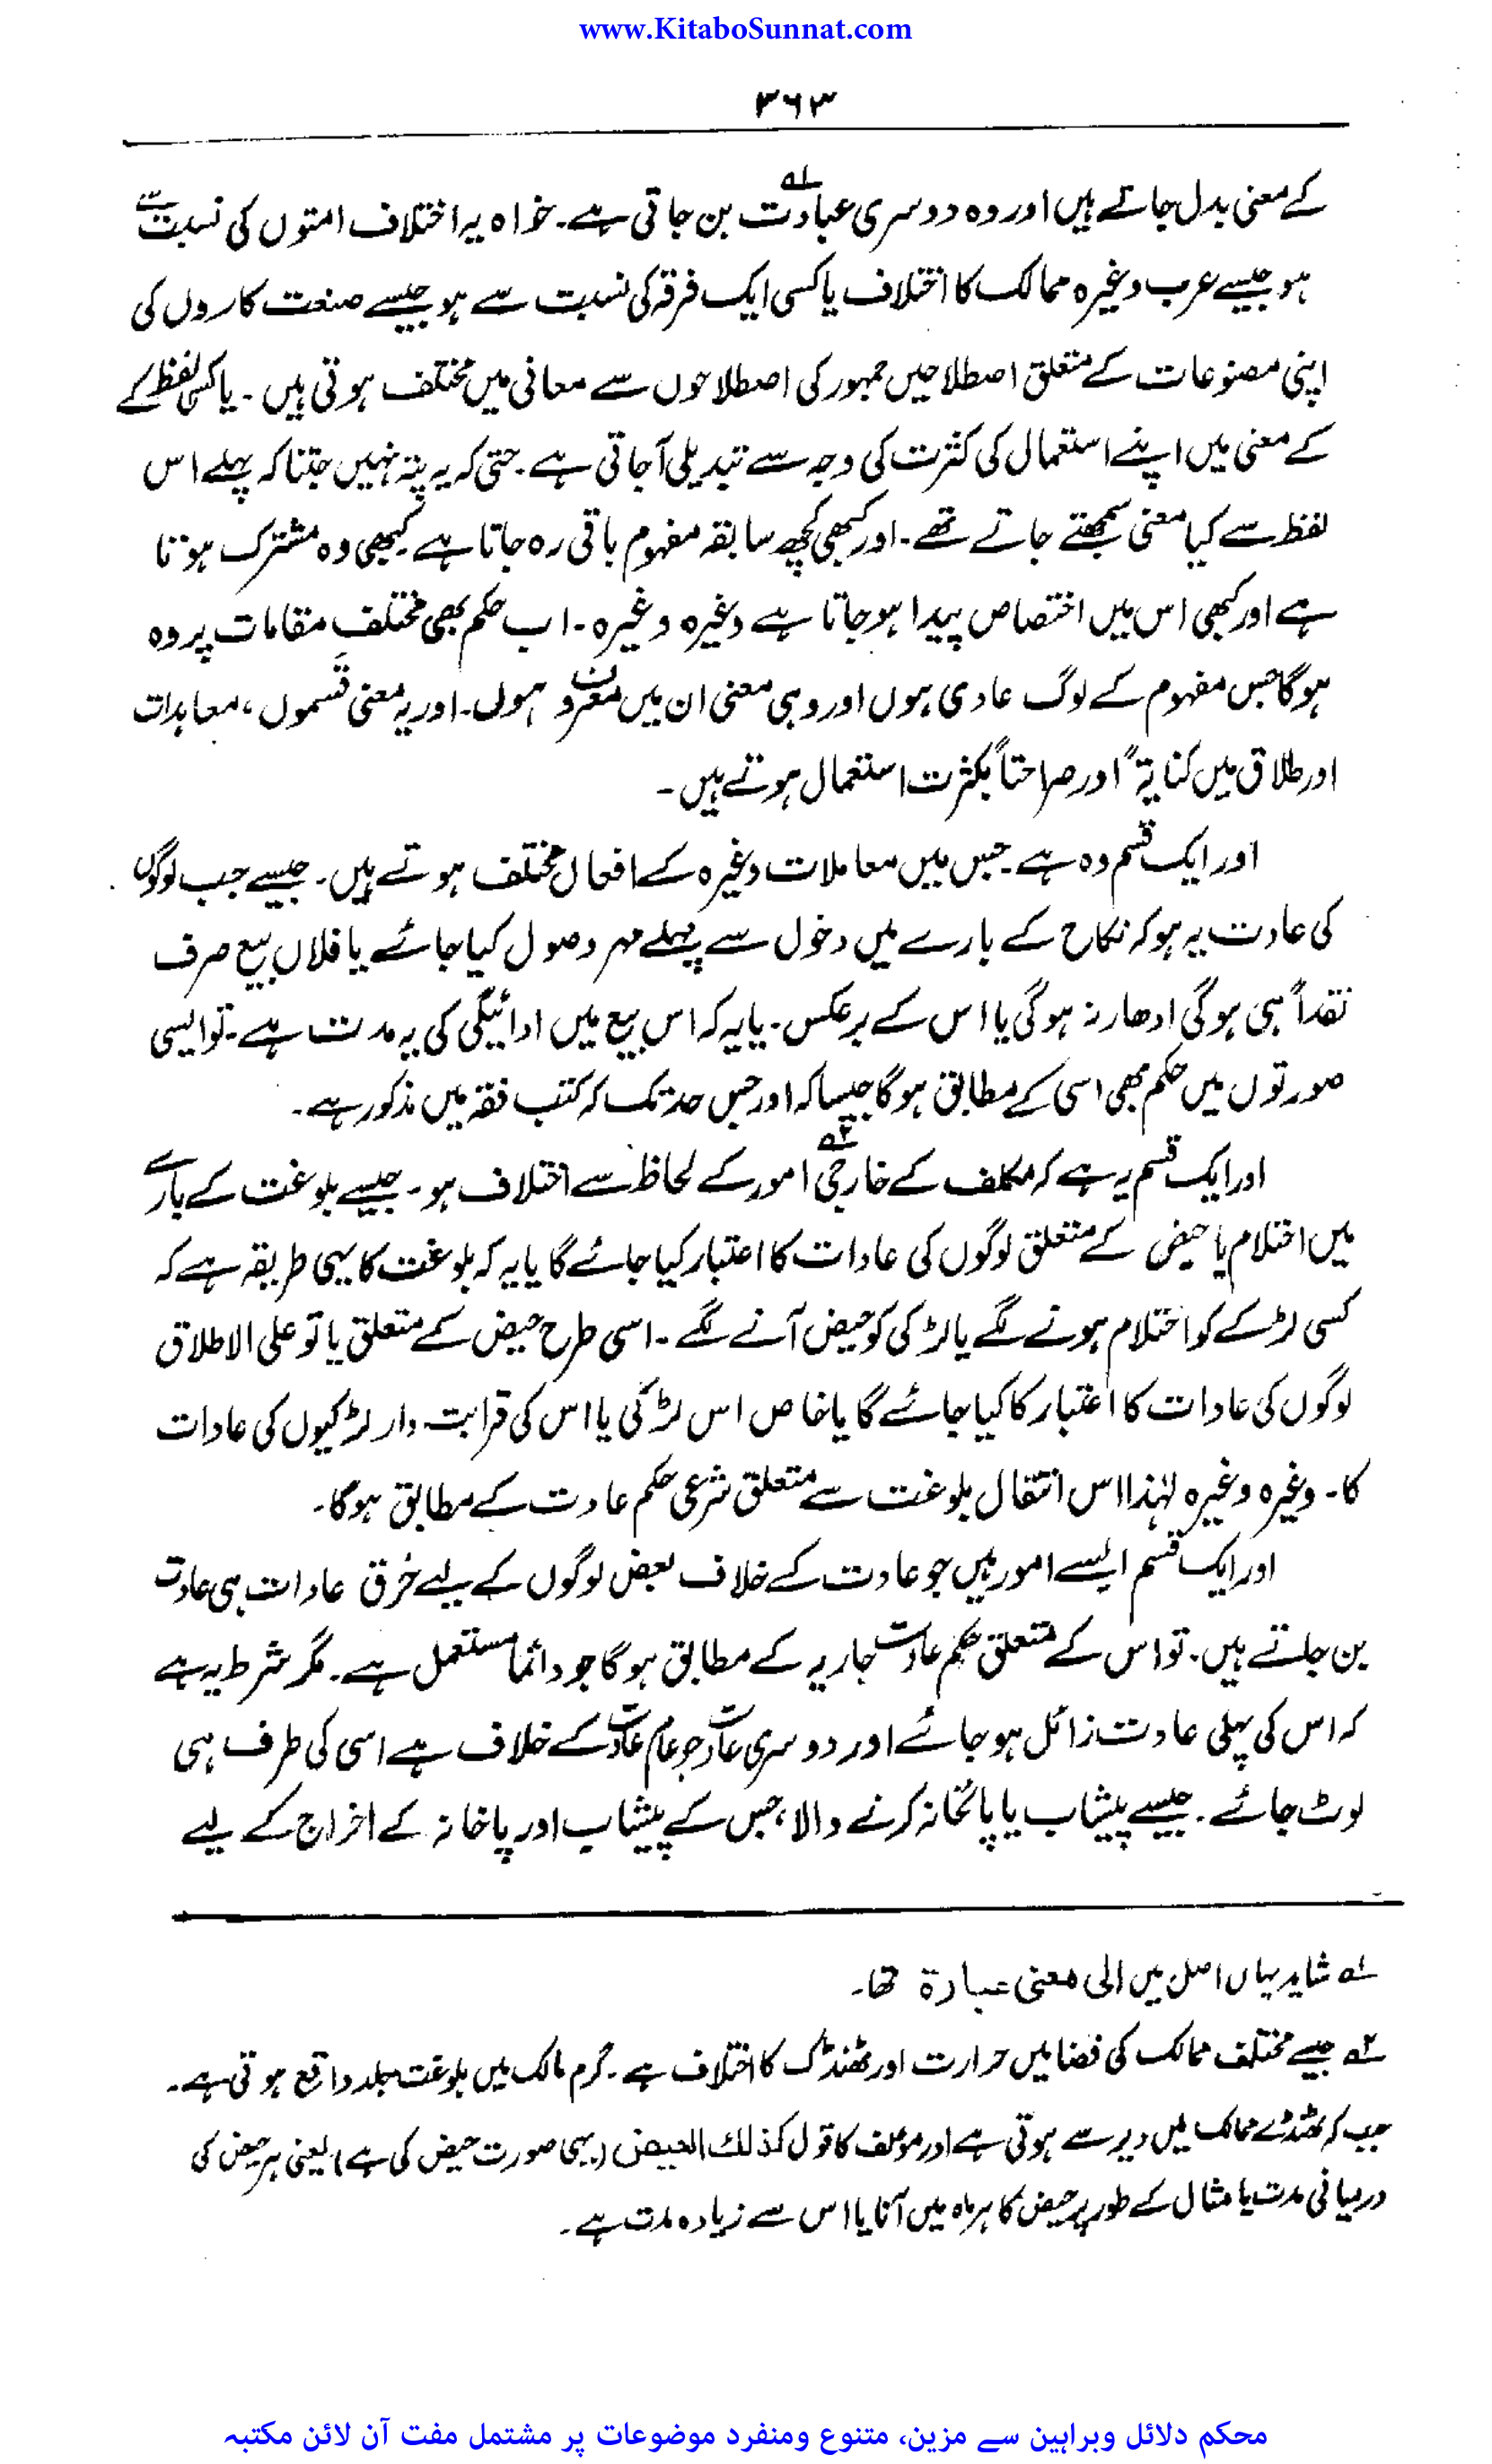 www.KitaboSunnat.com
۳۶۳
کے معنی بدل جاتے ہیں اور وہ دوسری عبادت۱ے بن جاتی ہے۔ خواہ یہ اختلاف امتوں کی نسبت سے
ہو جیسے عرب وغیرہ ممالک کا اختلاف یا کسی ایک فرقہ کی نسبت سے ہو جیسے صنعت کاروں کی
اپنی مصنوعات کے متعلق اصطلاحیں جمہور کی اصطلاحوں سے معانی میں مختلف ہوتی ہیں۔ یا کسی لفظ کے
کے معنی میں اپنے استعمال کی کثرت کی وجہ سے تبدیلی آجاتی ہے۔ حتی کہ یہ پتہ نہیں چتنا کہ پہلے اس
لفظ سے کیا معنی سمجھتے جاتے تھے۔ اور کبھی کچھ سابقہ مفہوم باقی رہ جاتا ہے کبھی وہ مشترک ہوتا
ہے اور کبھی اس میں اختصاص پیدا ہو جاتا ہے وغیرہ وغیرہ۔ اب حکم بھی مختلف مقامات پر وہ
ہو گا جس مفہوم کے لوگ عادی ہوں اور وہی معنی ان میں معروف ہوں۔ اور یہ معنی قسموں، معاہدات
اور طلاق میں کنایۃً اور صراحتاً بکثرت استعمال ہوتے ہیں۔
اور ایک قسم وہ ہے۔ جس میں معاملات وغیرہ کے افعال مختلف ہوتے ہیں۔ جیسے جب لوگوں
کی عادت یہ ہو کہ نکاح کے بارے میں دخول سے پہلے مہر وصول کیا جائے یا فلاں بیع صرف
نقداً ہی ہوگی ادھار نہ ہوگی یا اس کے برعکس۔ یا یہ کہ اس بیع میں ادائیگی کی یہ مدت ہے۔ تو ایسی
صورتوں میں حکم بھی اسی کے مطابق ہو گا جیسا کہ اور جس حد تک کہ کتب فقہ میں مذکور ہے۔
اور ایک قسم یہ ہے کہ مکلف کے خارجی۲ے امور کے لحاظ سے اختلاف ہو۔ جیسے بلوغت کے بارے
میں احتلام یا حیض کے متعلق لوگوں کی عادات کا اعتبار کیا جائے گا یا یہ کہ بلوغت کا یہی طریقہ ہے کہ
کسی لڑکے کو احتلام ہونے لگے یا لڑکی کو حیض آنے لگے۔ اسی طرح حیض کے متعلق یا تو علی الاطلاق
لوگوں کی عادات کا اعتبار کا کیا جائے گا یا خاص اس لڑکی یا اس کی قرابت دار لڑکیوں کی عادات
کا۔ وغیرہ وغیرہ لہٰذا اس انتقال بلوغت سے متعلق شرعی حکم عادت کے مطابق ہو گا۔
اور ایک قسم ایسے امور ہیں جو عادت کے خلاف بعض لوگوں کے لیے خرق عادات ہی عادت
بن جاتے ہیں۔ تو اس کے متعلق حکم عادت جاریہ کے مطابق ہو گا جو دائماً مستعمل ہے۔ مگر شرط یہ ہے
کہ اس کی پہلی عادت زائل ہو جائے اور دوسری عادت جو عام عادت کے خلاف ہے اسی کی طرف ہی
لوٹ جائے۔ جیسے پیشاب یا پائخانہ کرنے والا، جس کے پیشاب اور پاخانہ کے اخراج کے لیے
۱ے شاید یہاں اصل میں الی معنی عبارة تھا۔
۲ے جیسے مختلف ممالک کی فضا میں حرارت اور ٹھنڈک کا اختلاف ہے۔ گرم مالک میں بلوغت جلد واقع ہوتی ہے۔
جب کہ ٹھنڈے ممالک میں دیر سے ہوتی ہے اور مؤلف کا قول کذلك الحیض (یہی صورت حیض کی ہے) یعنی ہر حیض کی
درمیانی مدت یا مثال کے طور پر حیض کا ہر ماہ میں آنا یا اس سے زیادہ مدت ہے۔
محکم دلائل وبراہین سے مزین، متنوع ومنفرد موضوعات پر مشتمل مفت آن لائن مکتبہ